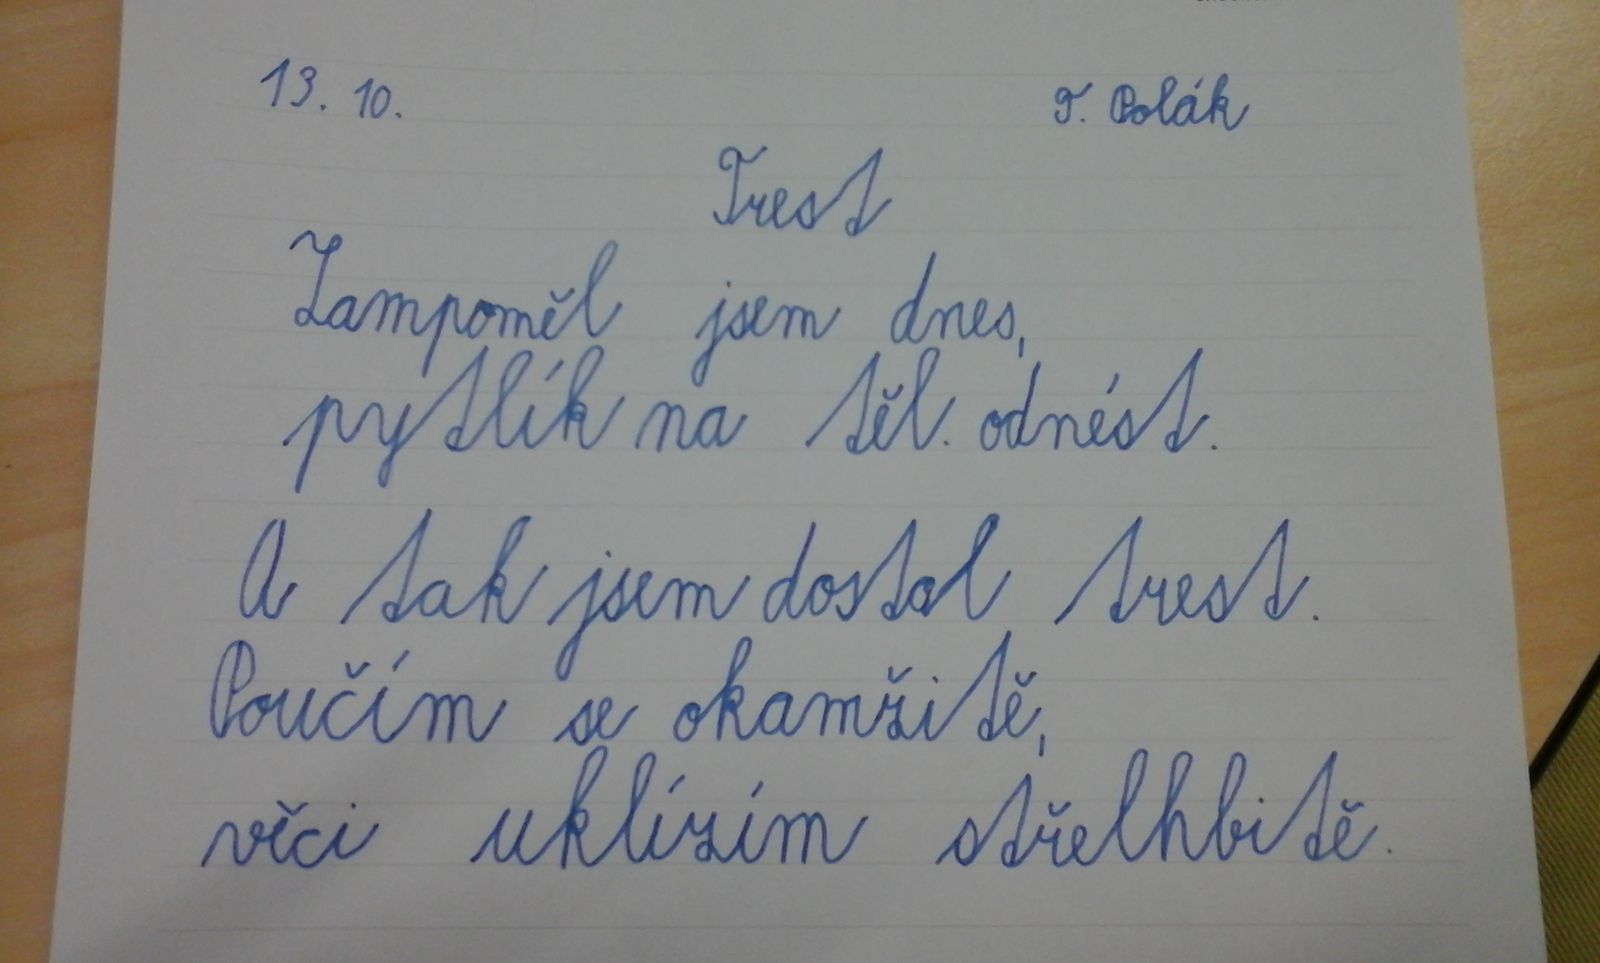 13. 10. T. Polák
Trest
Zampoměl jsem dnes,
pytlík na těl. odnést.
A tak jsem dostal trest.
Poučím se okamžitě,
věci uklízím střelhbitě.